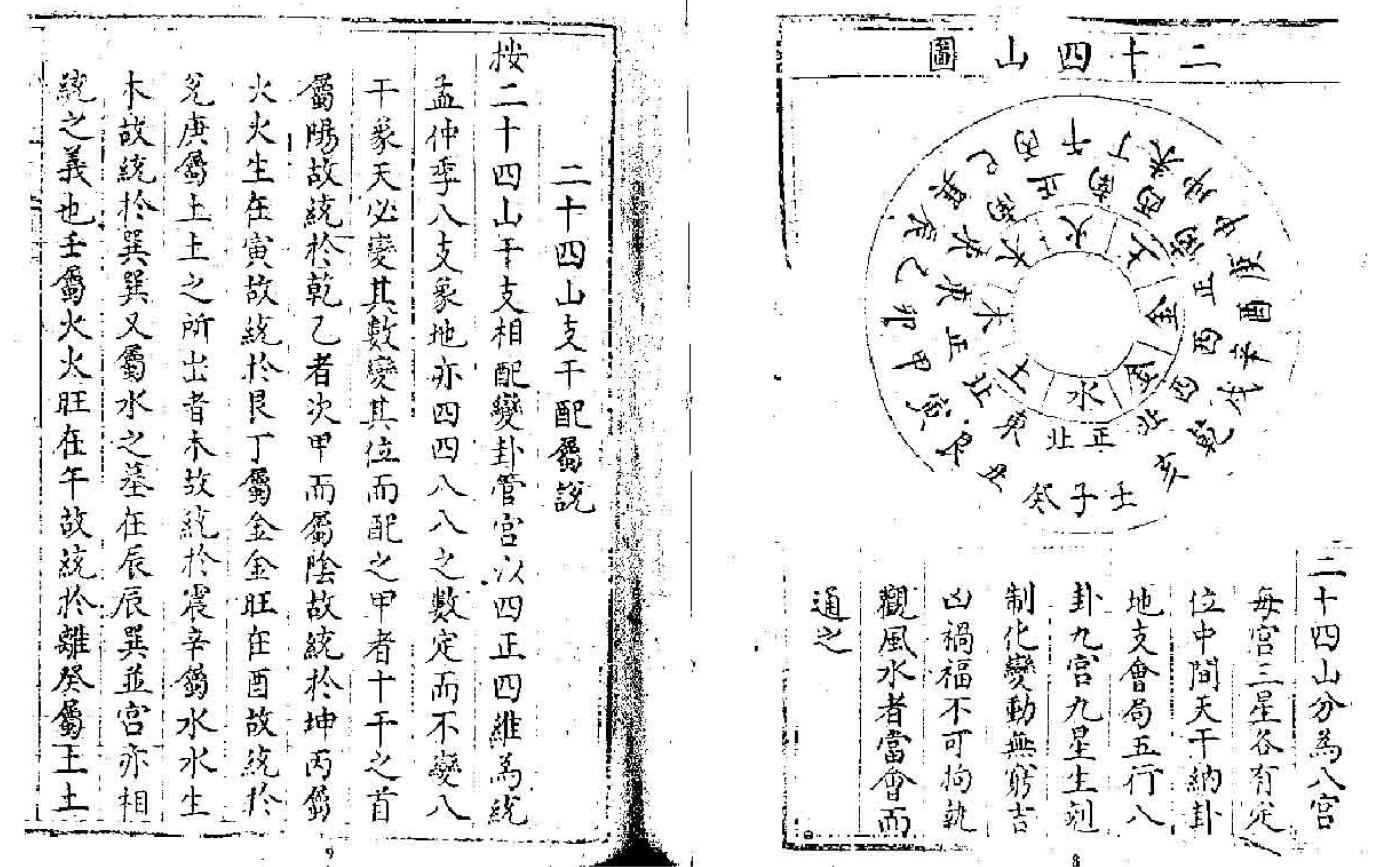 二十四山圖
壬子癸
丑艮寅
甲卯乙
辰巽巳
丙午丁
未坤申
庚酉辛
戌乾亥
正北
東北
正東
東南
正南
西南
正西
西北
水
土
木
木
火
土
金
金
二十四山分為八宮
每宮三星各有定
位中間天干納卦
地支會局五行八
卦九宮九星生剋
制化變動無窮吉
凶禍福不可拘執
觀風水者當會而
通之
8
二十四山支干配屬說
按二十四山干支相配變卦管宮以四正四維為統
孟仲季八支象地亦四四八八之數定而不變八
干象天必變其數變其位而配之甲者十干之首
屬陽故統於乾乙者次甲而屬陰故統於坤丙屬
火火生在寅故統於艮丁屬金金旺在酉故統於
兌庚屬土土之所出者木故統於震辛屬水水生
木故統於巽巽又屬水之墓在辰辰巽並宮亦相
統之義也壬屬火火旺在午故統於離癸屬王土
9